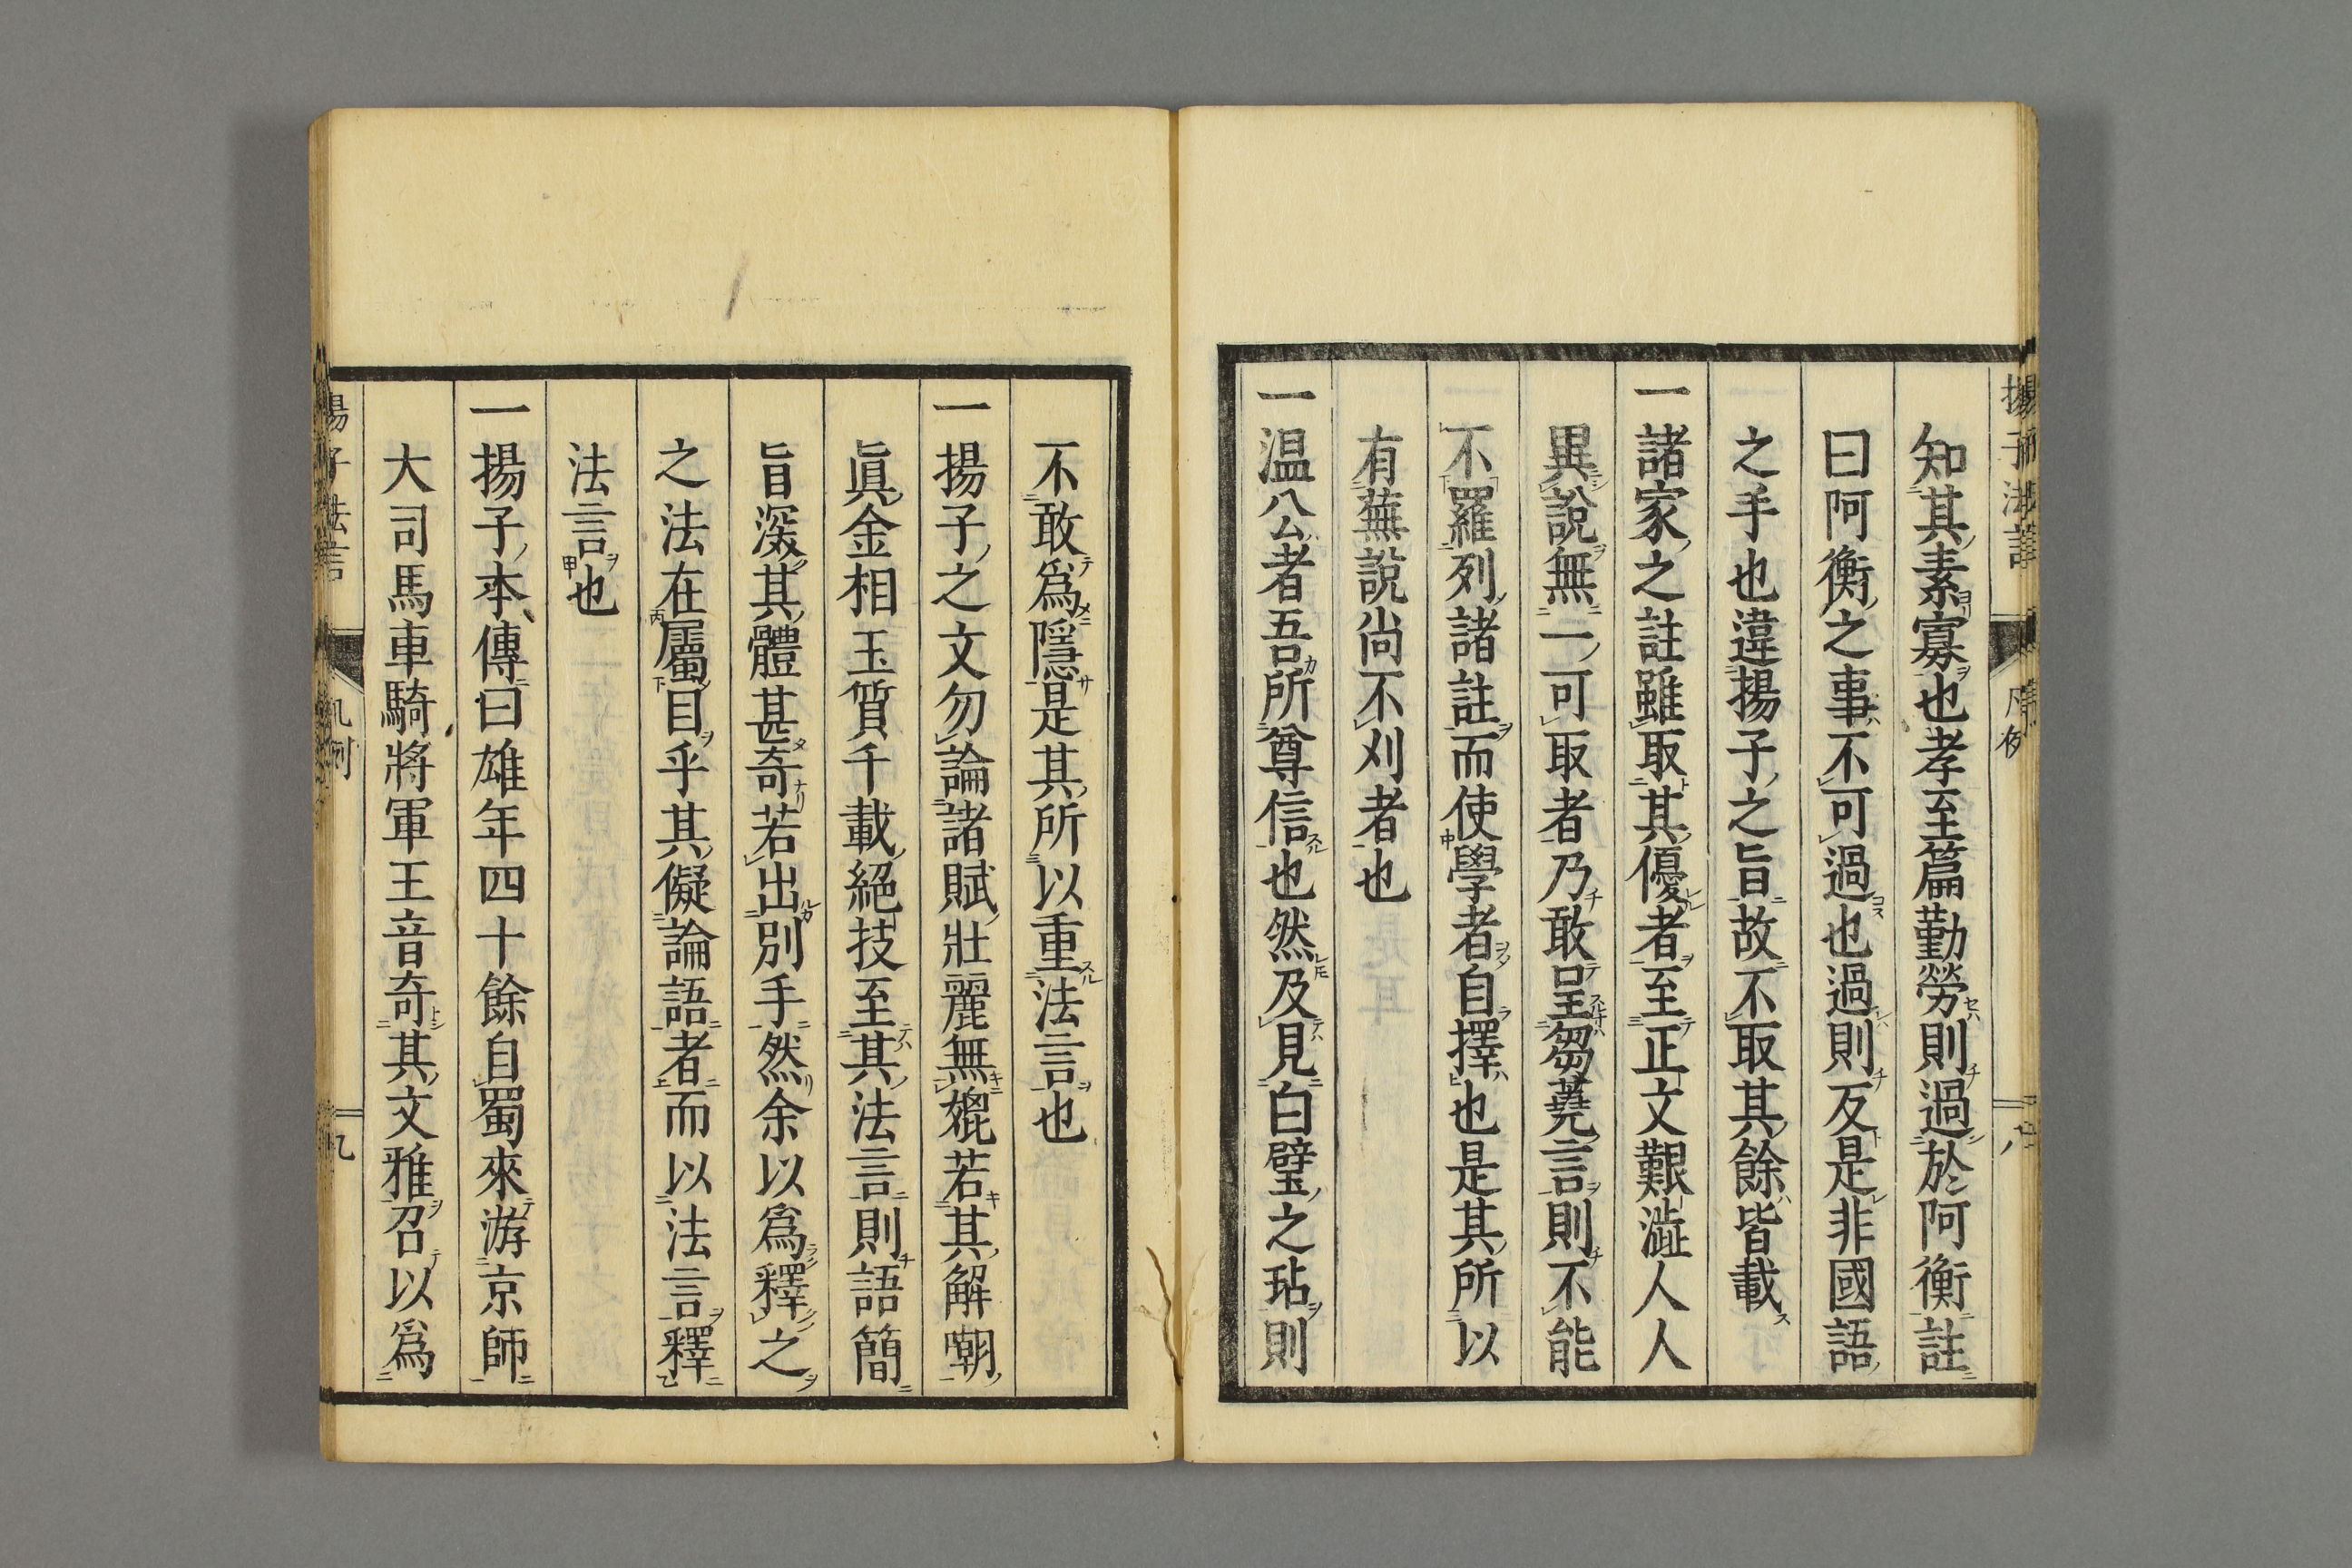 知其素寡也孝至篇勤勞則過於阿衡註
曰阿衡之事不可過也過則反是非國語
之手也違揚子之旨故不取其餘皆載
一諸家之註雖取其優者至正文艱澁人人
異說無一可取者乃敢呈芻蕘言則不能
不羅列諸註而使學者自擇也是其所以
有蕪說尚不刈者也
一温公者吾所尊信也然及見白璧之玷則
不敢爲隱是其所以重法言也
一揚子之文勿論諸賦壯麗無媲若其解嘲
眞金相玉質千載絕技至其法言則語簡
旨深其體甚奇若出別手然余以爲釋之
之法在屬目乎其儗論語者而以法言釋
法言也
一揚子本傳曰雄年四十餘自蜀來游京師
大司馬車騎將軍王音奇其文雅召以爲
凡例